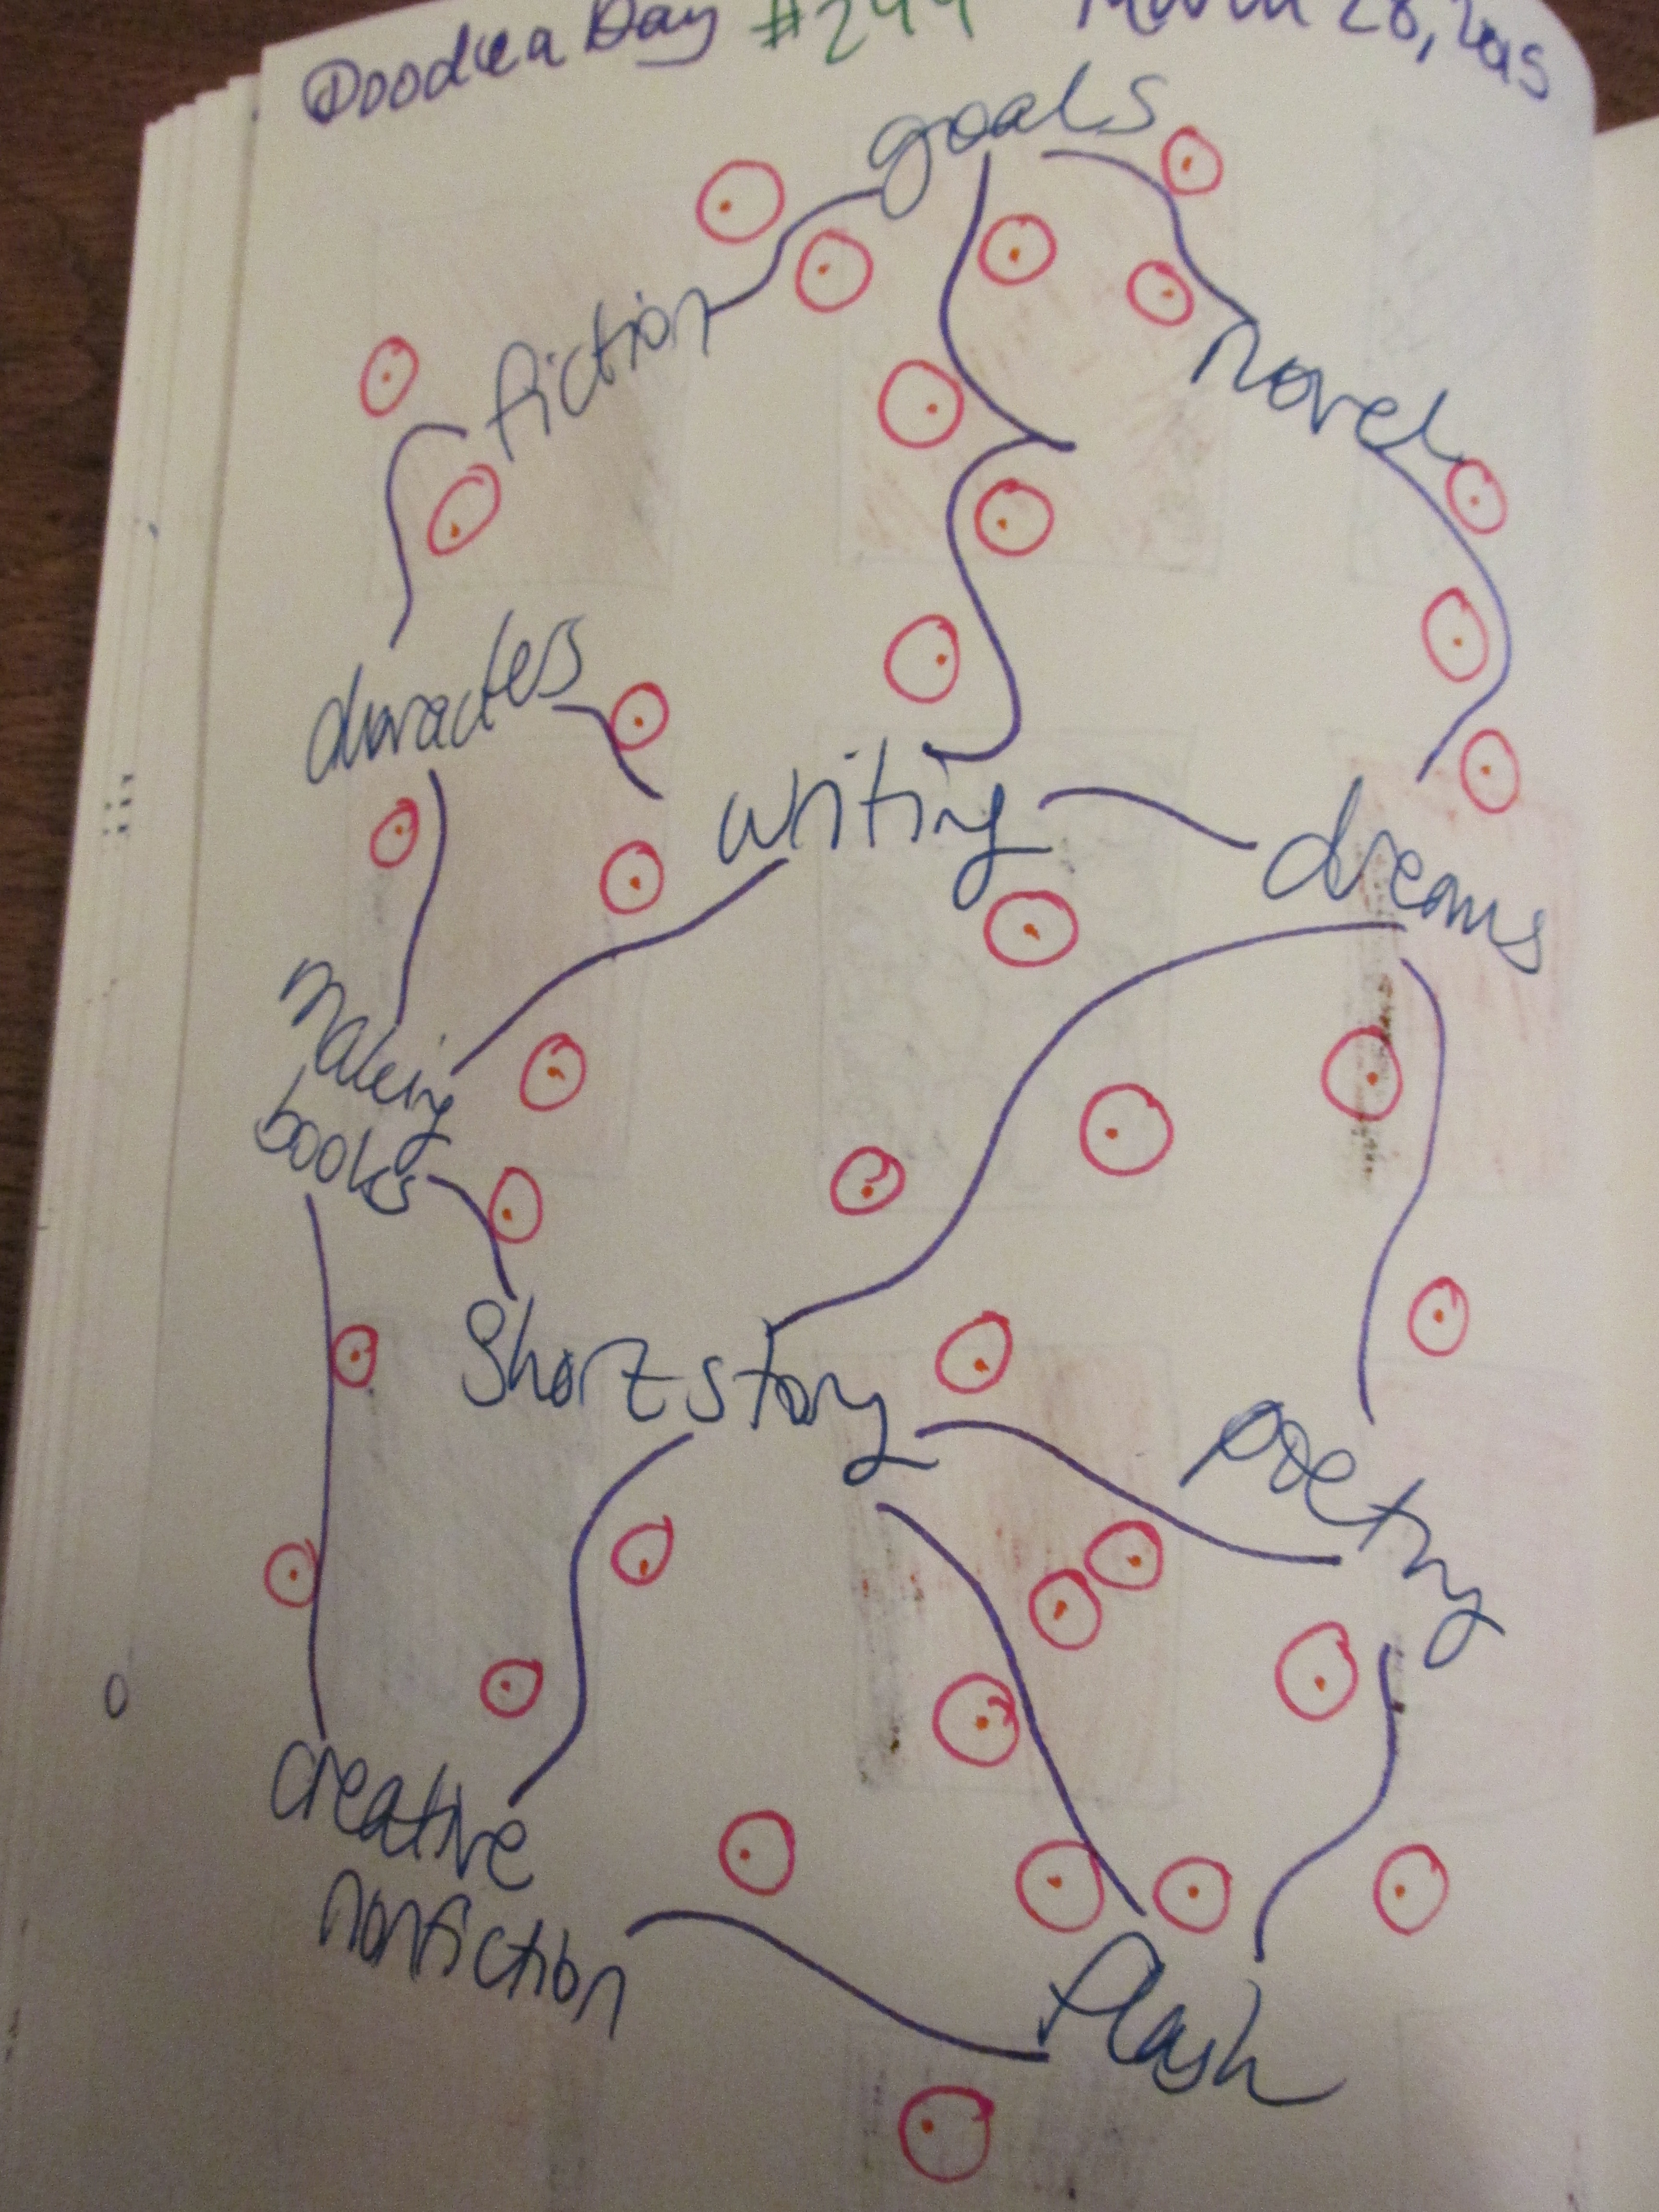 Doodle a Day #244 March 28, 2015
goals
fiction
novel
characters
writing
dreams
making
books
Short story
poetry
creative
nonfiction
flash